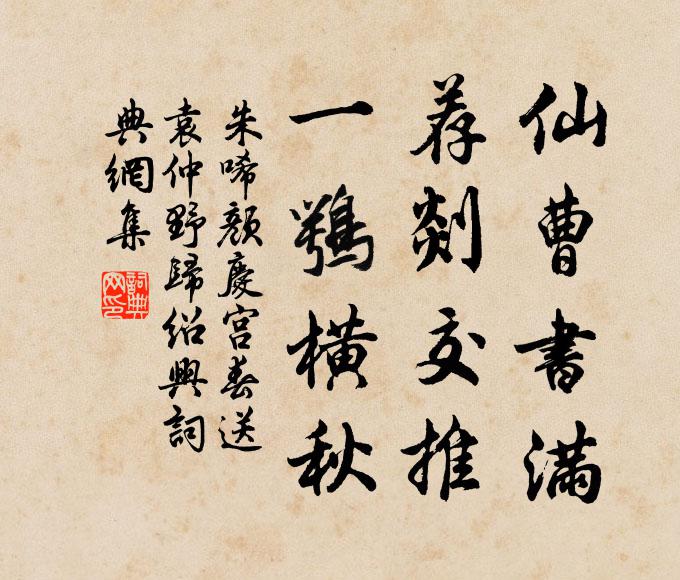 仙曹書滿
荐剡交推
一鶚橫秋
朱晞顏慶宮春送
袁仲野歸紹興詞
典網集
詞典網印